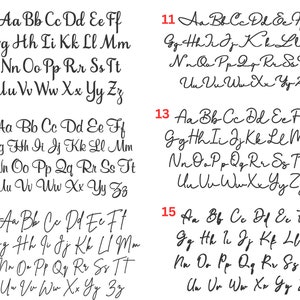 Aa Bb Cc Dd Ee Ff
Gg Hh Ii Kk Ll Mm
Nn Oo Pp Rr Ss Tt
Uu Vv Ww Xx Yy Zz
11 Aa Bb Cc Dd Ee Ff
Gg Hh Ii Jj Kk Ll Mm
Nn Oo Pp Qq Rr Ss Tt
Uu Vv Ww Xx Yy Zz
Aa Bb Cc Dd Ee Ff
Gg Hh Ii Jj Kk Ll Mm
Nn Oo Pp Qq Rr Ss Tt
Uu Vv Ww Xx Yy Zz
13 Aa Bb Cc Dd Ee Ff
Gg Hh Ii Jj Kk Ll Mm
Nn Oo Pp Qq Rr Ss Tt
Uu Vv Ww Xx Yy Zz
Aa Bb Cc Dd Ee Ff
Gg Hh Ii Jj Kk Ll Mm
Nn Oo Pp Qq Rr Ss Tt
Uu Vv Ww Xx Yy Zz
15 Aa Bb Cc Dd Ee Ff
Gg Hh Ii Jj Kk Ll
Nn Oo Pp Qq Rr Ss
Uu Vv Ww Xx Yy